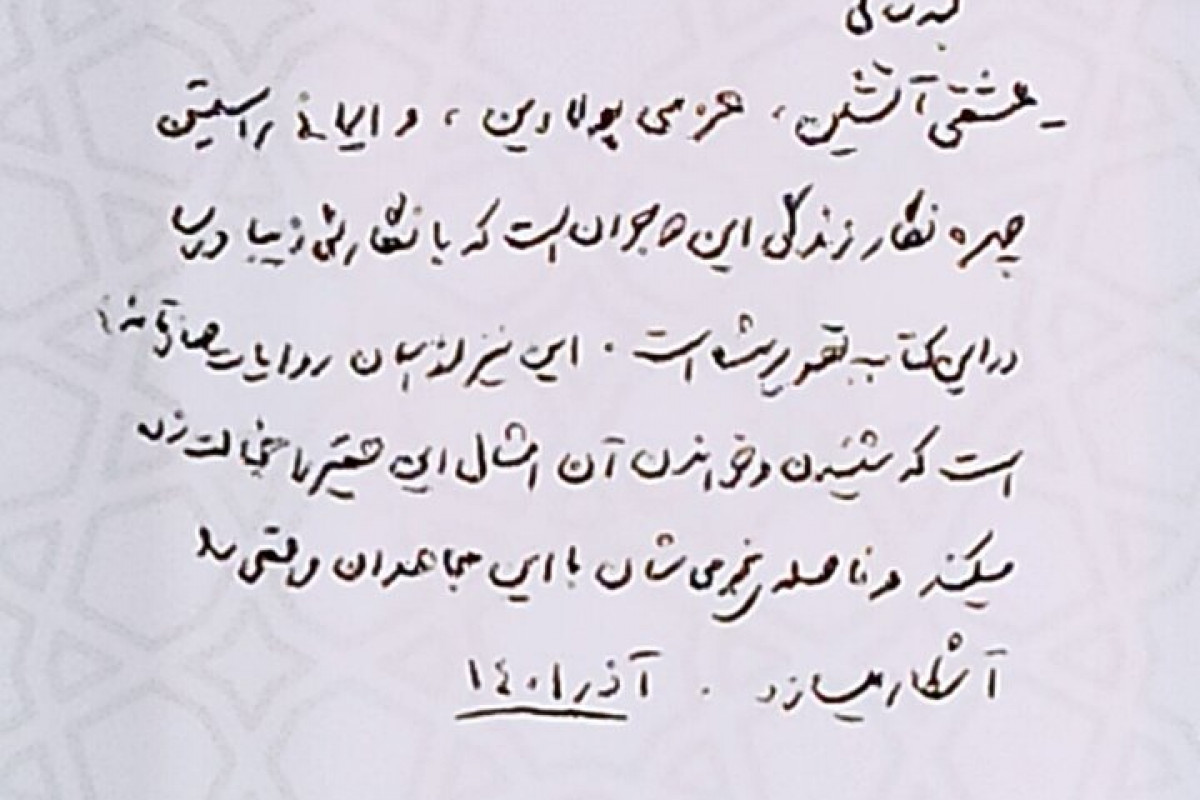 بسمه‌تعالی
ـ عشقی آتشین، عزمی پولادین، و ایمانی راستین
چهره نگار زندگی این جوان است که با نگارشی زیبا و رسا
در این کتاب به تصویر شده است. این نیز از آن روایات صادقانه
است که شنیدن و خواندن آن امثال این حقیر را خجالت زده
میکند و فاصله نجومی شان با این مجاهدان واقعی را
آشکار میسازد. آذر ۱۴۰۱